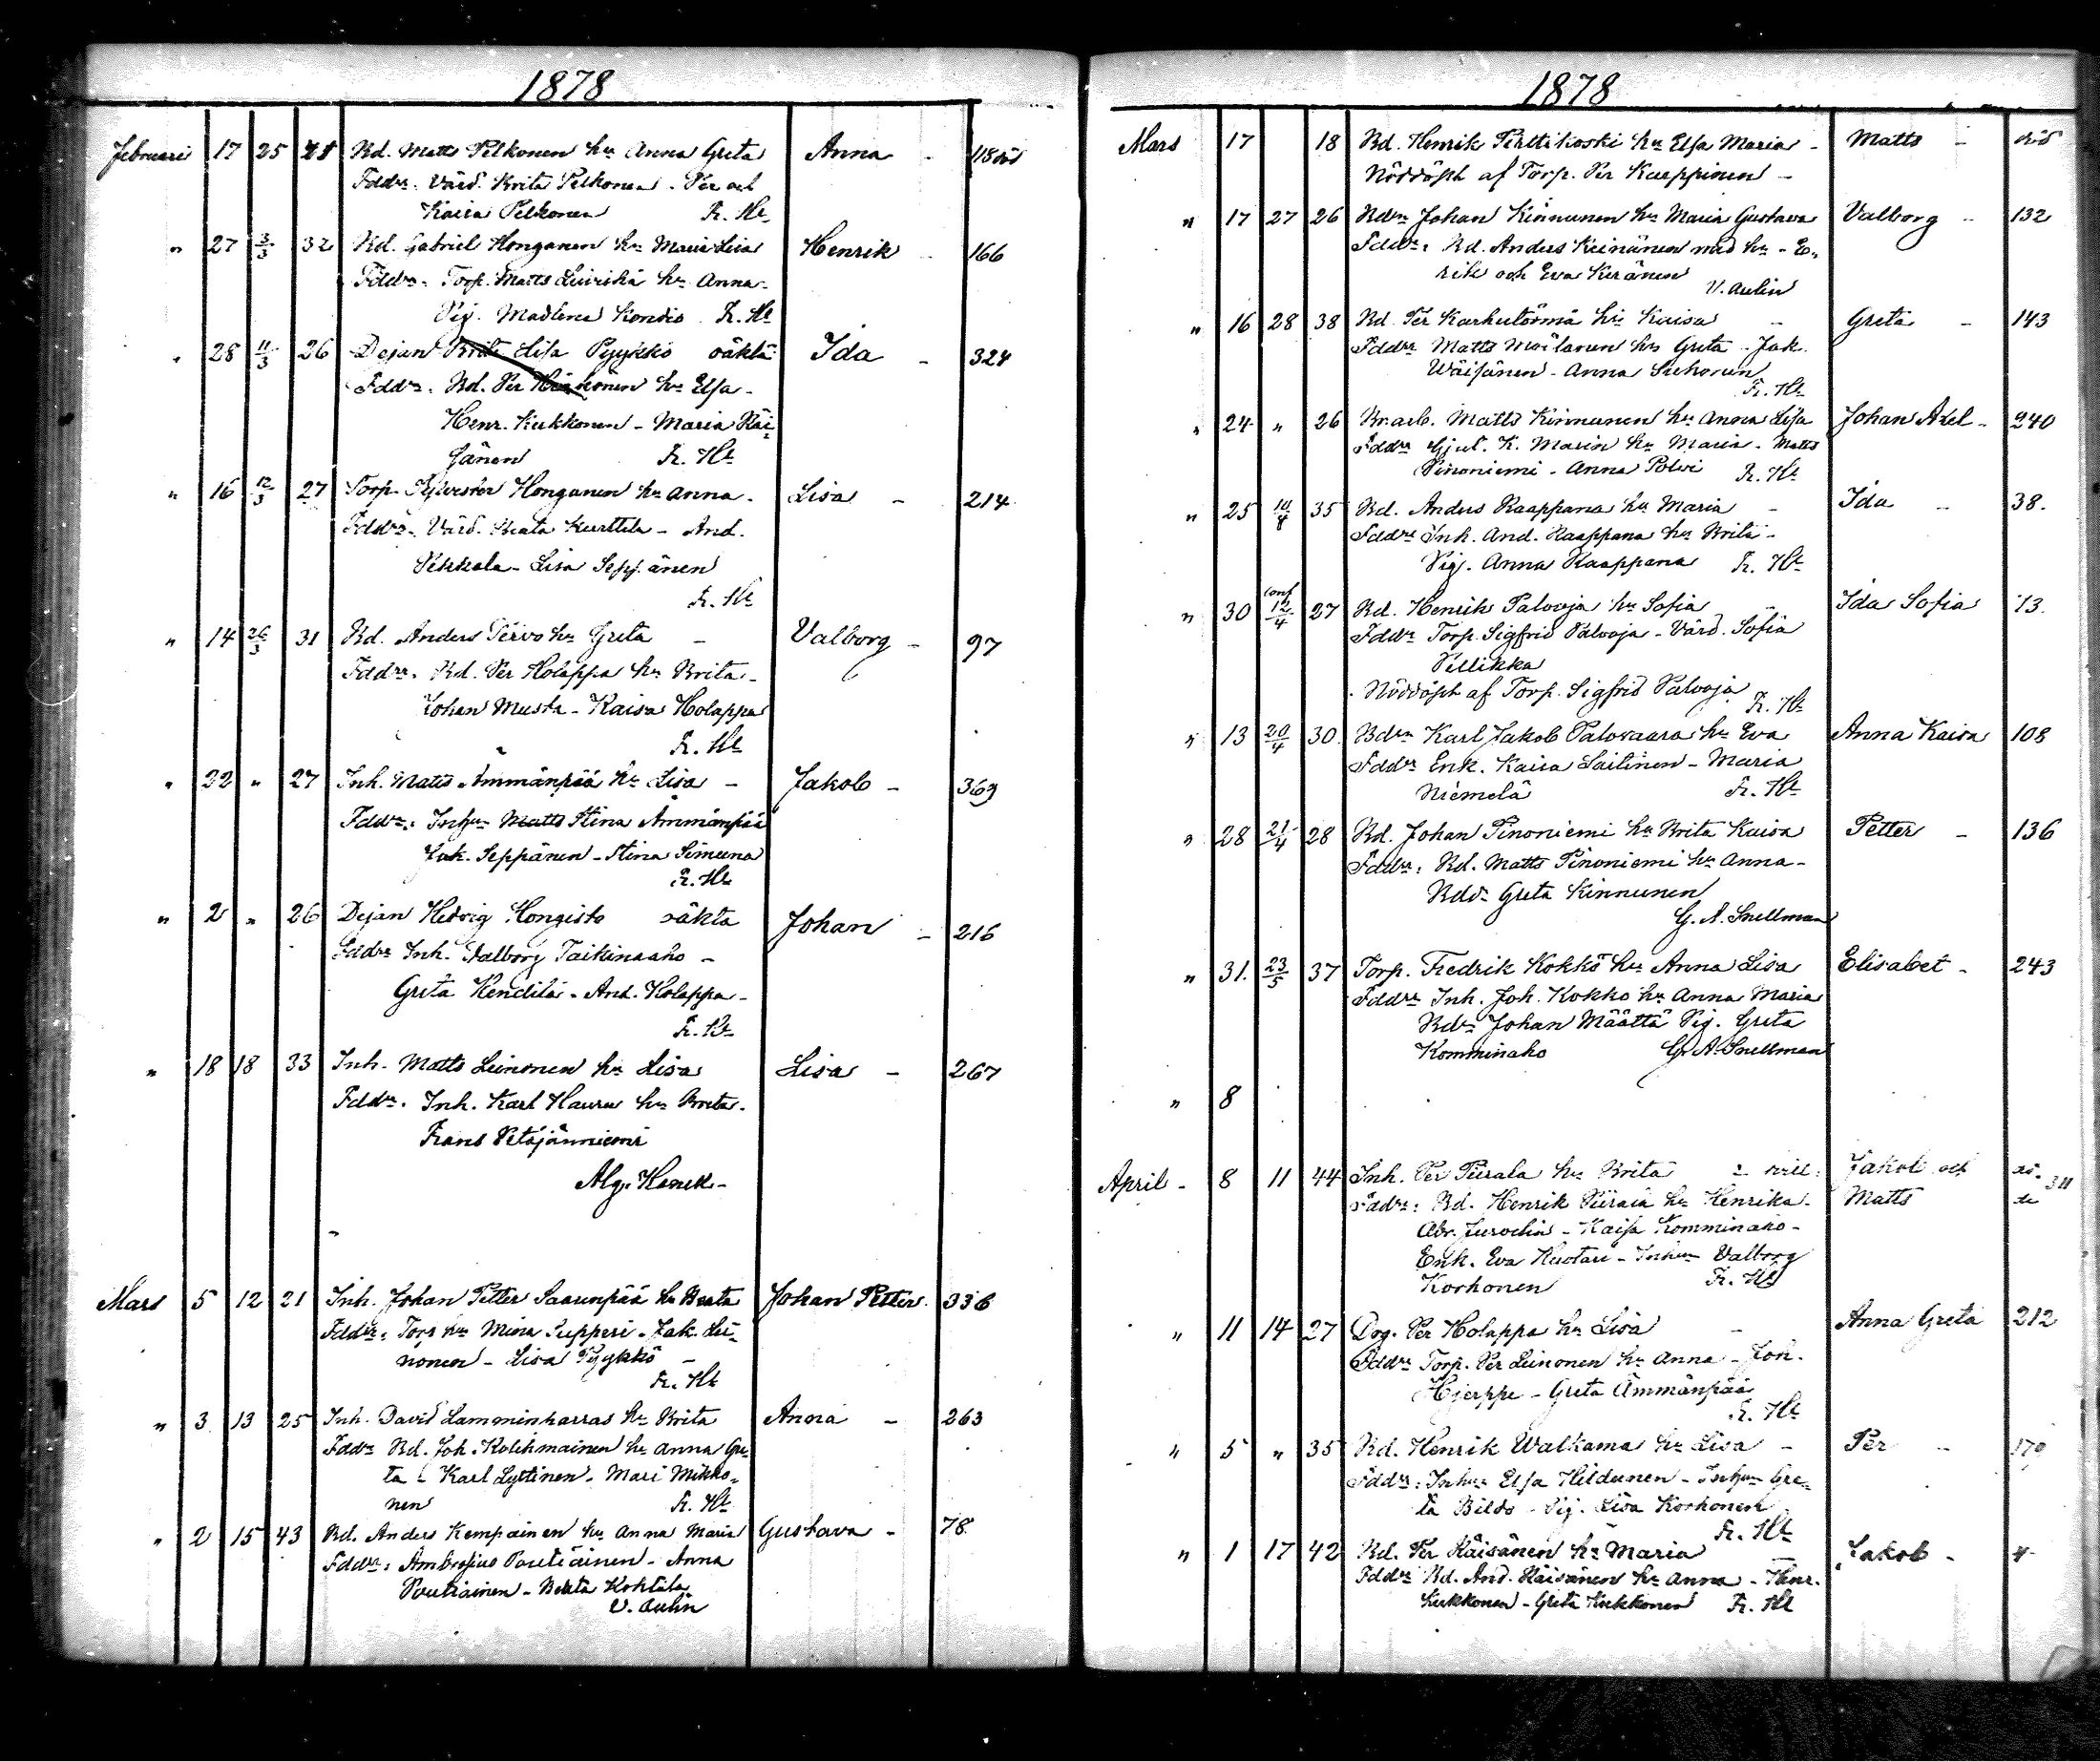 1878
Februari 17 25 28 Bd. Matts Pelkonen hu Anna Greta Anna - 118 död
Fddr: Värd. Brita Pelkonen - Per och
Kaisa Pelkonen Fr. Hl.
" 27 3/3 32 Bd. Gabriel Honganen hu Maria Lisa Henrik - 166
Fddr: Torp. Matts Leiviskä hu Anna -
Pig. Madlena Kondio Fr. Hl
" 28 11/3 26 Dejan Brita Lisa Pyykkö oäkta Ida - 324
Fddr: Bd. Per Härkönen hu Elsa -
Henr. Kukkonen - Maria Räi-
sänen Fr. Hl
" 16 12/3 27 Torp. Sylvester Honganen hu Anna - Lisa - 214
Fddr: Värd. Beata Kurttila - And.
Pekkala - Lisa Seppänen
Fr. Hl
" 14 26/3 31 Bd. Anders Tervo hu Greta - Valborg - 97
Fddr: Bd. Per Holappa hu Brita -
Johan Musta - Kaisa Holappa
Fr. Hl
" 22 " 27 Inh. Matts Ämmänpää hu Lisa - Jakob - 369
Fddr: Inhu Matts Stina Ämmänpää
Jak. Seppänen - Stina Simuna
Fr. Hl
" 2 " 26 Dejan Hedvig Hongisto oäkta Johan - 216
Fddr Inh. Valborg Taikinaaho -
Greta Kendilä - And. Holappa -
Fr. Hl
" 18 18 33 Inh. Matts Leinonen hu Lisa Lisa - 267
Fddr. Inh. Karl Hauru hu Brita -
Frans Petäjänniemi
Alg.
Mars 5 12 21 Inh. Johan Petter Saarenpää hu Beata Johan Petter. 336
Fddr: Torp hu Mina Supperi - Jak. Lei-
nonen - Lisa Pyykkö -
Fr. Hl
" 3 13 25 Inh. David Lamminharras hu Brita Anna - 263
Fddr Bd. Joh. Kolehmainen hu Anna Gre-
ta - Karl Lyttinen - Mari Mikko-
nen Fr. Hl
" 2 15 43 Bd. Anders Kempainen hu Anna Maria Gustava - 78
Fddr: Ambrosius Poutiainen - Anna
Poutiainen - Beata Kohtala
V. Aulin
1878
Mars 17 18 Bd. Henrik Perttikoski hu Elsa Maria - Matts - död
Nöddöpt af Torp. Per Karppinen -
" 17 27 26 Bdsn Johan Kinnunen hu Maria Gustava Valborg - 132
Fddr: Bd. Anders Keinänen med hu - E-
rik och Eva Keränen
V. Aulin
" 16 28 38 Bd. Per Karhutörmä hu Kaisa - Greta - 143
Fddr Matts Moilanen hu Greta - Jak.
Wäisänen - Anna Suhonen
Fr. Hl
" 24 " 26 Br.arb. Matts Kinnunen hu Anna Lisa Johan Axel - 240
Fddr Gjut. K. Marin hu Maria - Matts
Pinoniemi - Anna Polvi Fr. Hl
" 25 10/4 35 Bd. Anders Kaappana hu Maria - Ida - 38.
Fddr Inh. And. Kaappana hu Brita -
Pig. Anna Kaappana Fr. Hl
" 30 conf 12/4 27 Bd. Henrik Palvoja hu Sofia Ida Sofia 13.
Fddr Torp. Sigfrid Palvoja - Värd. Sofia
Pellikka
Nöddöpt af Torp. Sigfrid Palvoja
Fr. Hl
" 13 20/4 30 Bdsn Karl Jakob Palovaara hu Eva Anna Kaisa 108
Fddr Enk. Kaisa Lailinen - Maria
Niemelä Fr. Hl
" 28 21/4 28 Bd. Johan Pinoniemi hu Brita Kaisa Petter - 136
Fddr: Bd. Matts Pinoniemi hu Anna -
Bdr Greta Kinnunen
G. A. Snellman
" 31. 23/5 37 Torp. Fredrik Kokkö hu Anna Lisa Elisabet - 243
Fddr Inh. Joh. Kokko hu Anna Maria
Bdsn Johan Määttä Pig. Greta
Komminaho G. A. Snellman
" 8
April - 8 11 44 Inh. Per Piirala hu Brita Jakob och 311
Fddr: Bd. Henrik Piirala hu Henrika - Matts
Abr. Jurvelin - Kaisa Komminaho -
Enk. Eva Huotari - Inhu Valborg
Korhonen Fr. Hl
" 11 14 27 Drg. Per Holappa hu Lisa - Anna Greta 212
Fddr Torp. Per Leinonen hu Anna - Joh.
Hjerppe - Greta Ämmänpää
Fr. Hl
" 5 " 35 Bd. Henrik Walkama hu Lisa - Per - 179
Fddr: Inhu Elsa Hildunen - Inhu Gre-
ta Bildo - Pig. Lisa Korhonen
Fr. Hl
" 1 17 42 Bd. Per Räisänen hu Maria - Jakob - 4
Fddr Bd. And. Räisänen hu Anna - Henr.
Kukkonen - Greta Kukkonen Fr. Hl